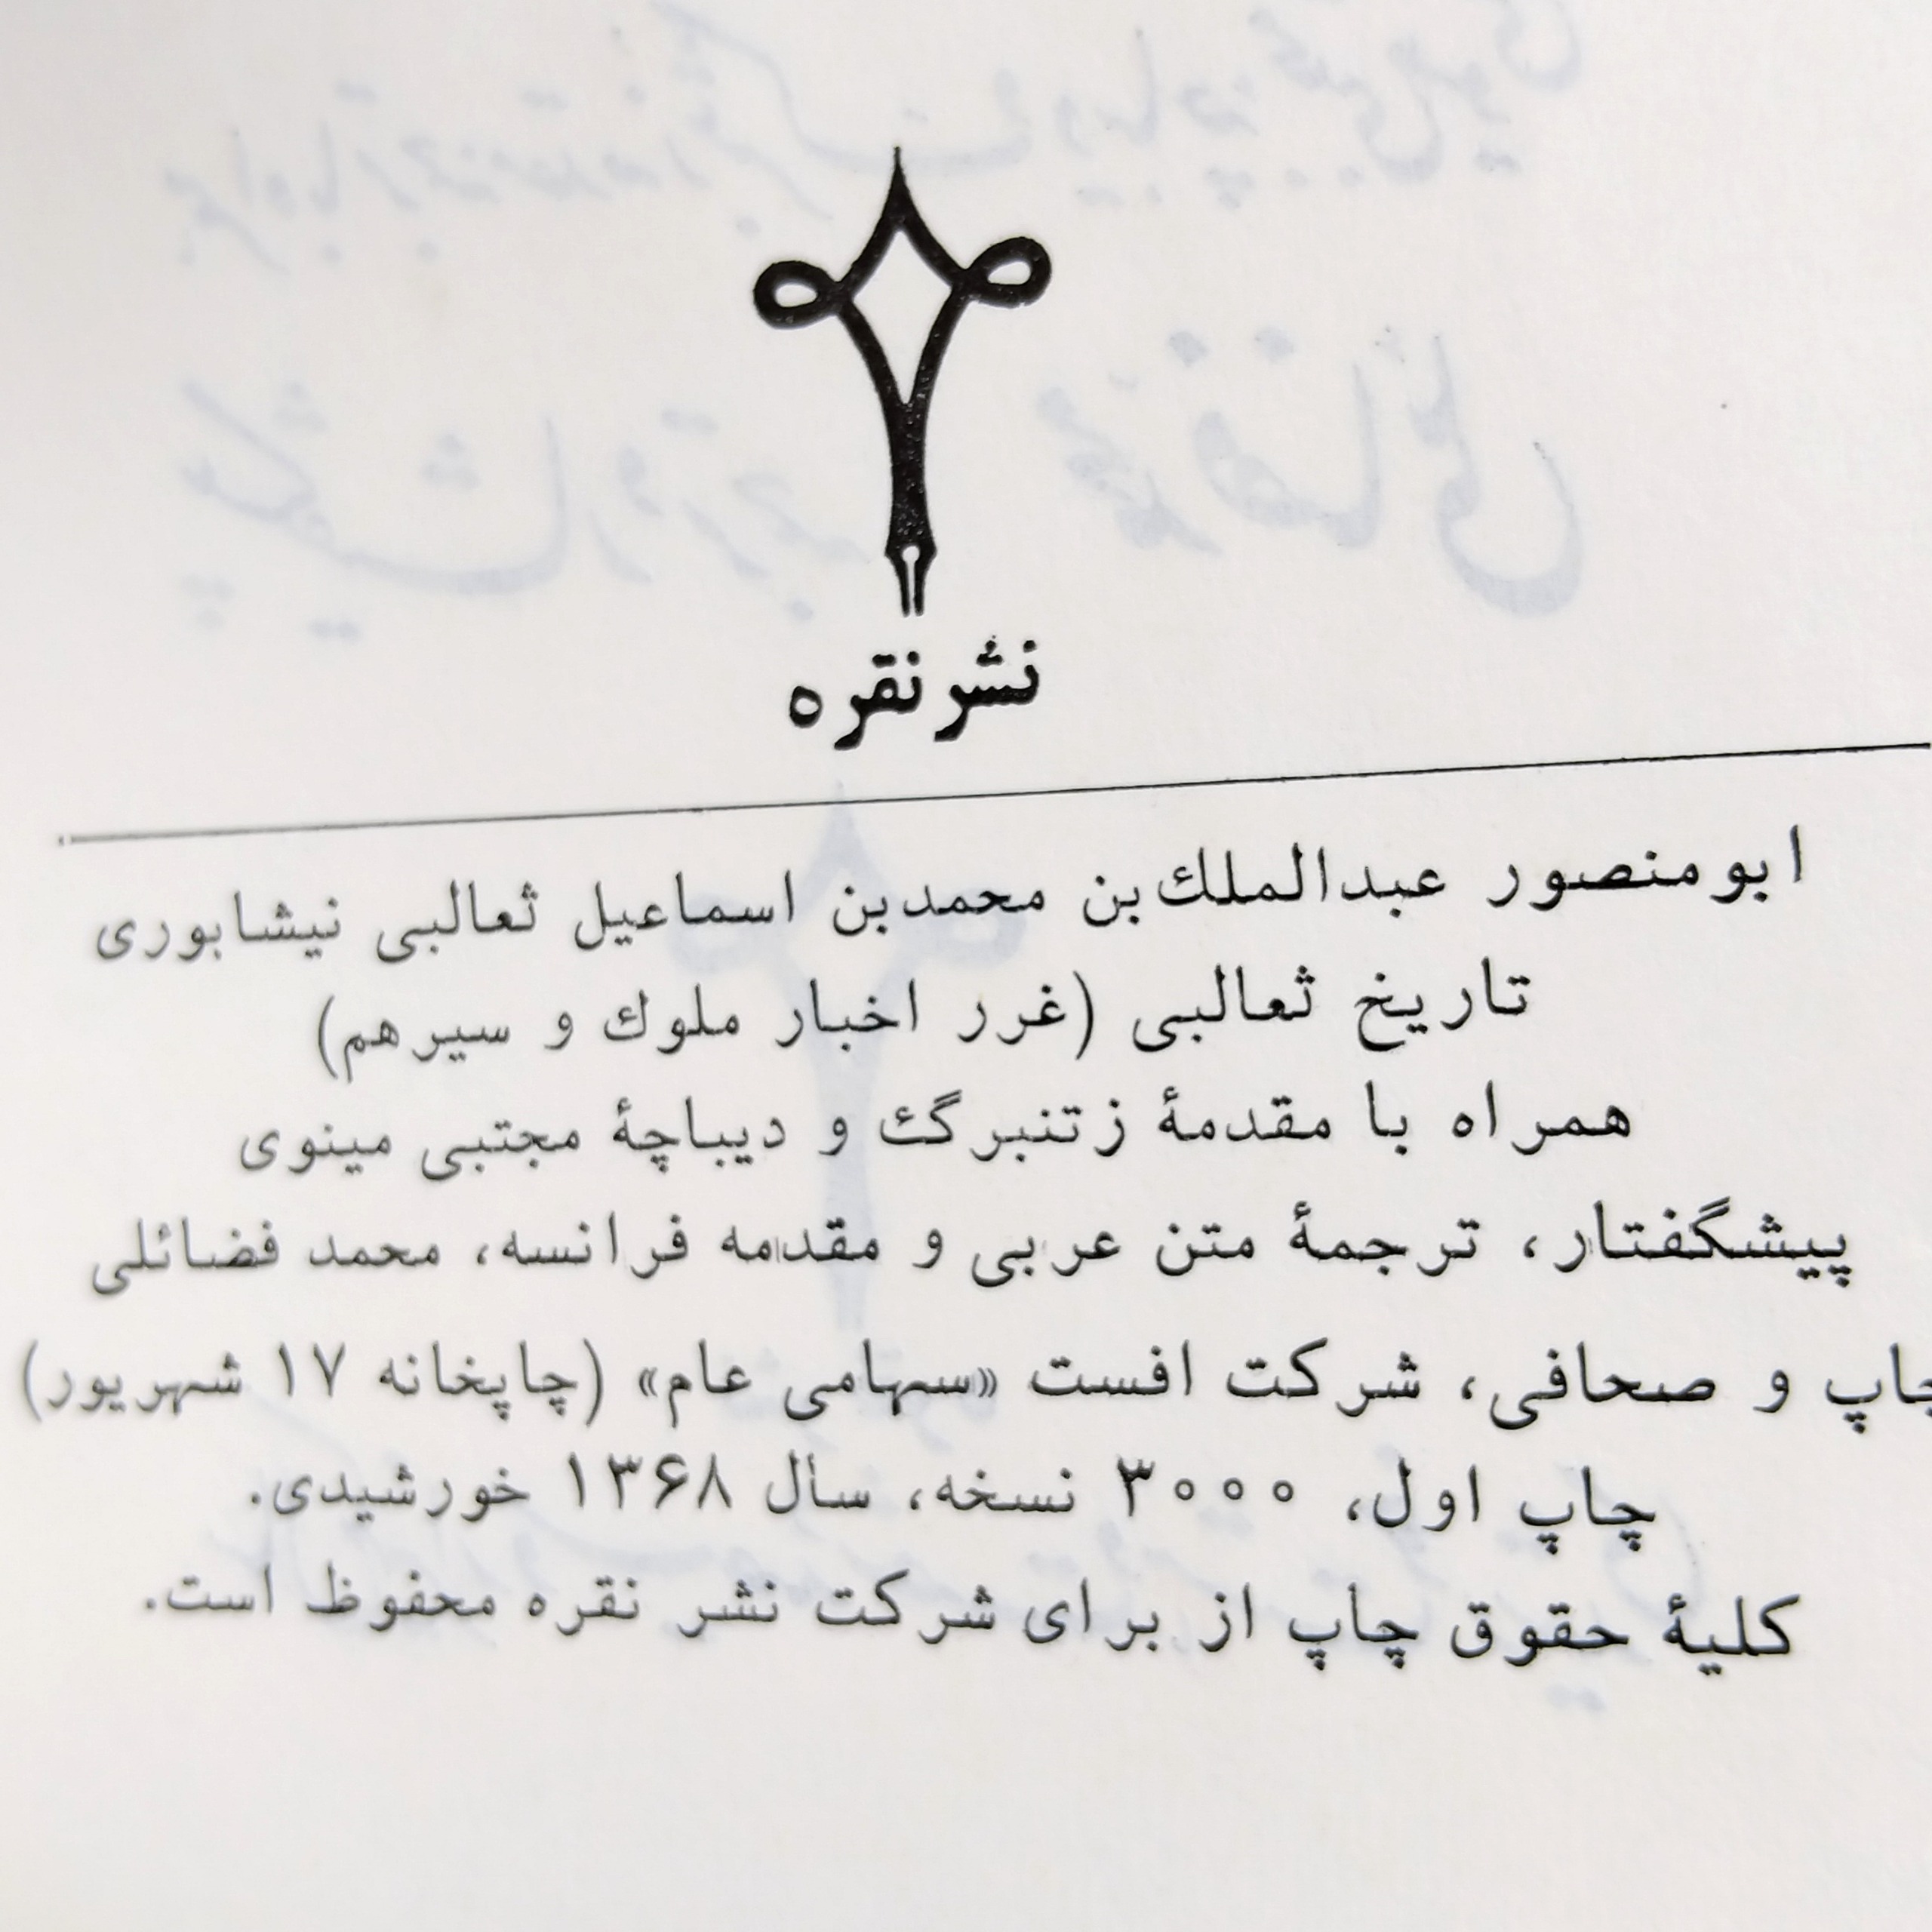 نشر نقره
ابومنصور عبدالملك‌بن محمدبن اسماعیل ثعالبی نیشابوری
تاریخ ثعالبی (غرر اخبار ملوك و سیرهم)
همراه با مقدمهٔ زتنبرگ و دیباچهٔ مجتبی مینوی
پیشگفتار، ترجمهٔ متن عربی و مقدمه فرانسه، محمد فضائلی
چاپ و صحافی، شرکت افست «سهامی عام» (چاپخانه ۱۷ شهریور)
چاپ اول، ۳۰۰۰ نسخه، سال ۱۳۶۸ خورشیدی.
کلیهٔ حقوق چاپ از برای شرکت نشر نقره محفوظ است.